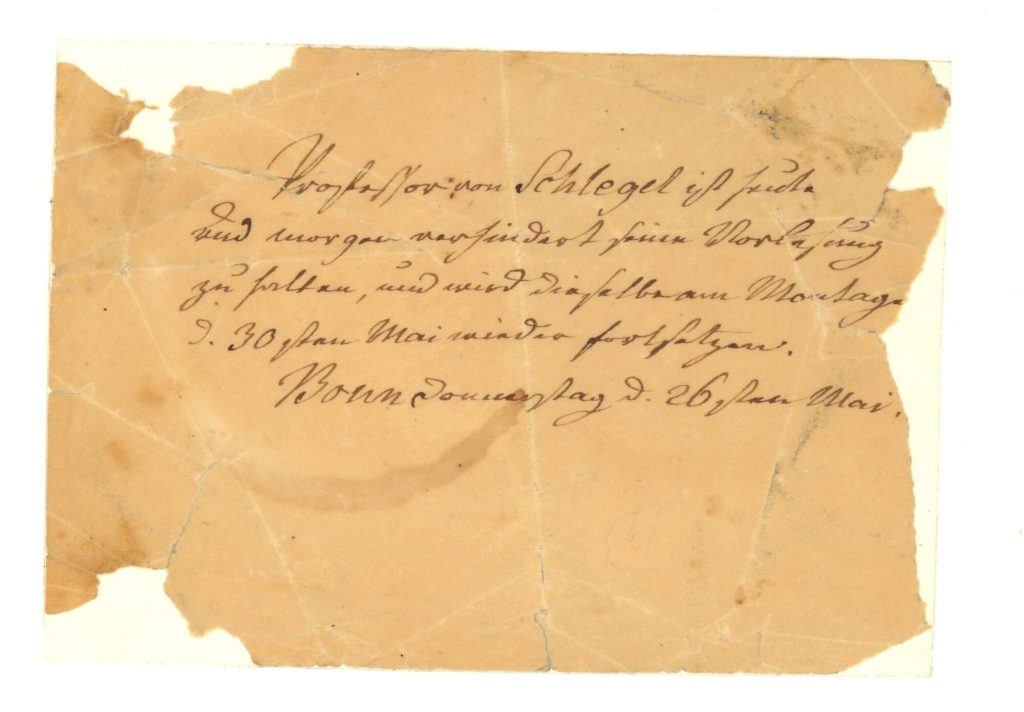 Professor von Schlegel ist heute
und morgen verhindert seine Vorlesung
zu halten, und wird dieselbe am Montage
d. 30sten Mai wieder fortsetzen.
Bonn Donnerstag d. 26sten Mai.